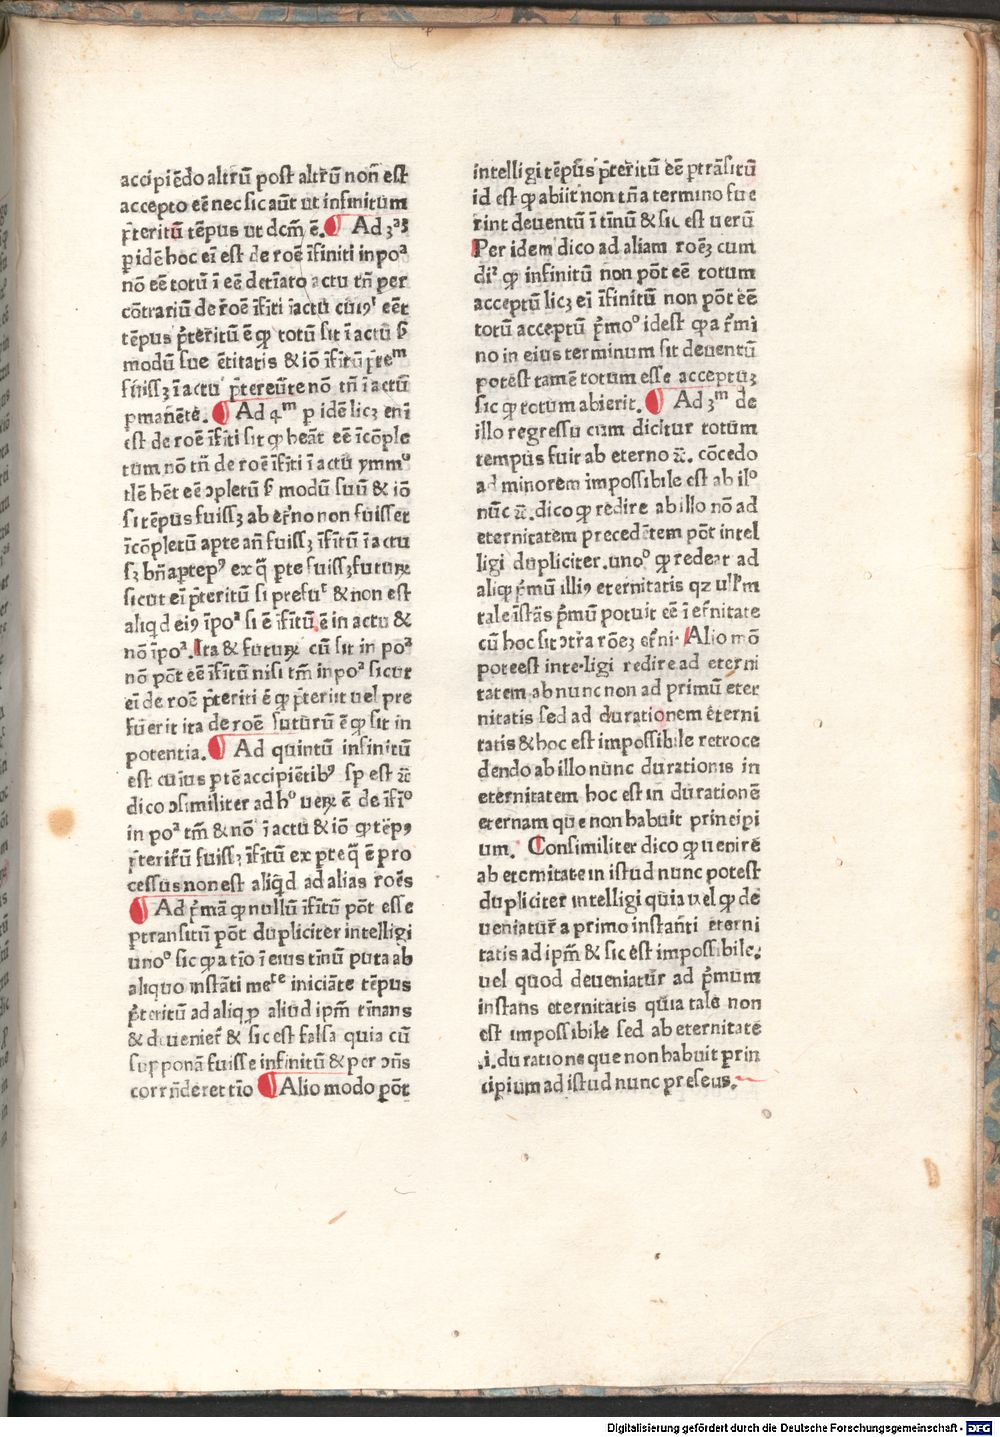 accipiēdo altrū post altrū non est
accepto eē nec sic aūt ut infinitum
p̄teritū tēpus ut dcm̄ ē. Ad 3ᵃꝫ
p idē hoc eī est de roē īfiniti in poᵃ
nō eē totū ī eē detīato actu tn̄ per
cōtrariū de roē īfiti īactu cui⁹ eēt
tēpus p̄teritū ē ꝙ totū sit ī actu ſꝫ
modū sue ētitatis & iō īfitū p̄teᵐ
fuissꝫ ī actu p̄tereūte nō tn̄ ī actū
pmanēte. Ad 4ᵐ p idē licꝫ eni
est de roē īfiti sit ꝙ heāt eē īcōple
tum nō tn̄ de roē īfiti ī actū ymmº
tlē hēt eē ɔpletū ſꝫ modū suū & iō
si tēpus fuissꝫ ab et̄no non fuisset
īcōpletū apte an̄ fuissꝫ īfitū ī actu
sꝫ bn̄ apte p⁹ ex q̄ pte fuissꝫ futuꝝ
sicut eī p̄teritū si prefuᵗ & non est
aliqd ei⁹ īpoᵃ si ē īfitū ē in actu &
nō īpoᵃ. Ita & futuꝝ cū sit in poᵃ
nō pōt eē īfitū nisi tm̄ in poᵃ sicut
eī de roē p̄teriti ē ꝙ p̄terit uel pre
fuerit ita de roē futurū ē ꝙ sit in
potentia. Ad quintū infinitū
est cuius ptē accipiētib⁹ sp est &̄
dico ɔsimiliter ad hº ueꝝ ē de īfīº
in poᵃ tm̄ & nō ī actu & iō ꝙ tēp⁹
p̄teritū fuissꝫ īfitū ex pte q̄ ē pro
cessus non est aliqd̄ ad alias roēs
Ad p̄mā ꝙ nullū īfitū pōt esse
ptransitū pōt dupliciter intelligi
unoº sic ꝙ a tīo ī eius tīnū puta ab
aliquo instāti meᵗᵉ iniciāte tēpus
p̄teritū ad aliqꝫ aliud ipm̄ tīnans
& deueniet̄ & sic est falsa quia cū
supponā fuisse infinitū & per ɔn̄s
corrn̄deret tīo Alio modo pōt
intelligi tēpus p̄teritū eē ptrāsitū
id est ꝙ abiit non tn̄ a termino fue
rint deuentū ī tīnū & sic est uerū
Per idem dico ad aliam roēꝫ cum
diʳ ꝙ infinitū non pōt eē totum
acceptū licꝫ eī īfinitū non pōt eē
totū acceptū p̄moº idest ꝙ a t̄mi
no in eius terminum sit deuentū
potest tamē totum esse acceptuꝫ
sic ꝙ totum abierit. Ad 3ᵐ de
illo regressu cum dicitur totum
tempus fuit ab eterno &̄. cōcedo
ad minorem impossibile est ab iloº
nūc &̄. dico ꝙ redire ab illo nō ad
eternitatem precedētem pōt intel
ligi dupliciter. unoº ꝙ redeat ad
aliqꝫ p̄mū illi⁹ eternitatis qz ull'm
tale īstās p̄mū potuit eē ī et̄nitate
cū hoc sit ɔtr̄a rōeꝫ et̄ni. Alio mō
poteest inteligi redire ad eterni
tatem ab nunc non ad primū eter
nitatis sed ad durationem eterni
tatis & hoc est impossibile retroce
dendo ab illo nunc durationis in
eternitatem hoc est in durationē
eternam que non habuit principi
um. Consimiliter dico ꝙ uenire
ab eternitate in istud nunc potest
dupliciter intelligi quia uel ꝙ de
ueniatur a primo instanti eterni
tatis ad ipm̄ & sic est impossibile.
uel quod deueniatur ad p̄mum
instans eternitatis quia tale non
est impossibile sed ab eternitate
.i. duratione que non habuit prin
cipium ad istud nunc preseus.
Digitalisierung gefördert durch die Deutsche Forschungsgemeinschaft - DFG